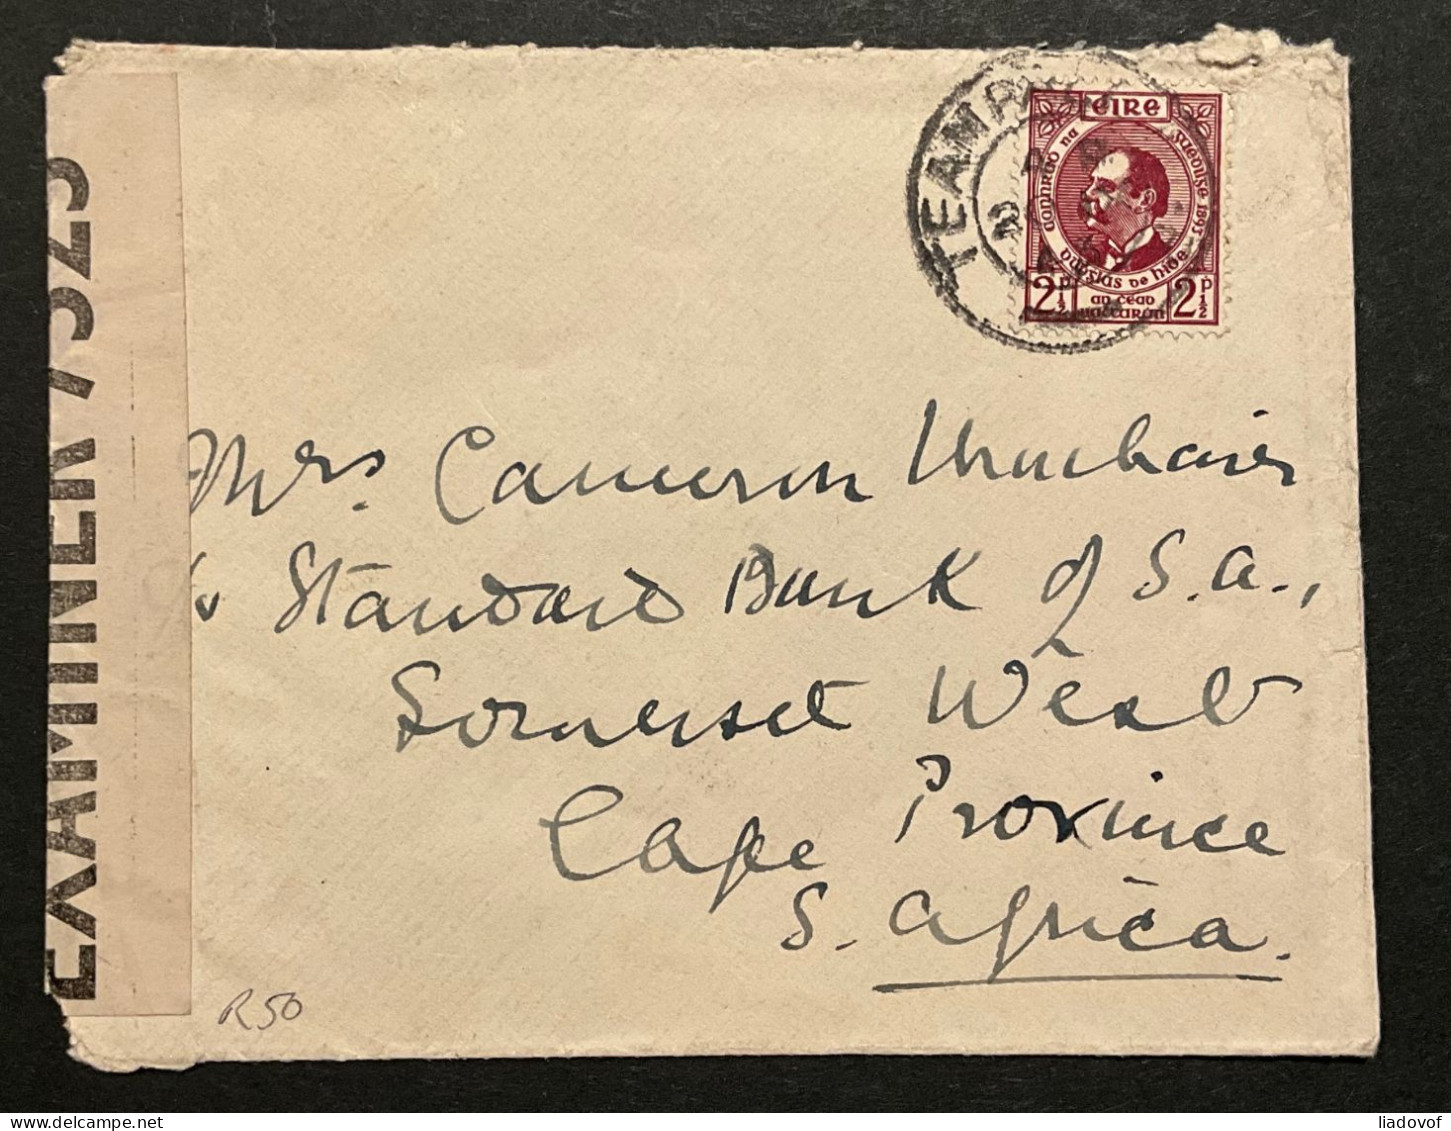 EXAMINER 7525
TEAMP
éIRe
Connrad na Gaeḋilge 1893
Duḃglás de híde
2½p an céad uaċtarán 2½p
Mrs. Cameron
c/o Standard Bank of S.A.,
Somerset West
Cape Province
S. Africa.
R50
liadovof